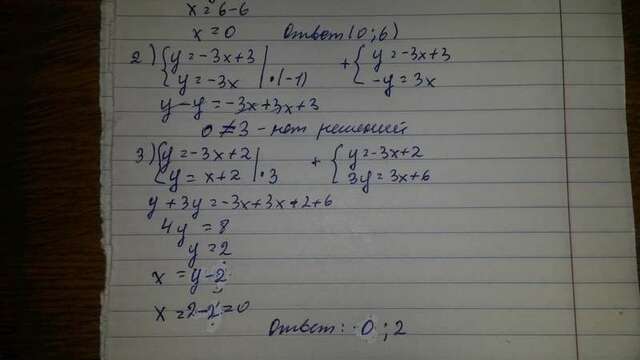 x = 6-6
x = 0 Ответ (0; 6)
2) { y = -3x+3 + { y = -3x+3
y = -3x | •(-1) -y = 3x
y - y = -3x+3x+3
0 ≠ 3 - нет решений
3) { y = -3x+2 + { y = -3x+2
y = x+2 | •3 3y = 3x+6
y + 3y = -3x+3x+2+6
4y = 8
y = 2
x = y-2
x = 2-2=0
Ответ: 0; 2